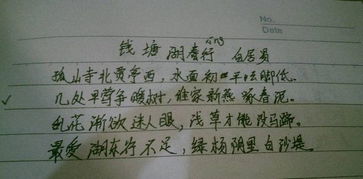 No.
Date
xíng
钱塘湖春行 白居易
孤山寺北贾亭西,水面初平云脚低。
几处早莺争暖树,谁家新燕啄春泥。
乱花渐欲迷人眼,浅草才能没马蹄。
最爱湖东行不足,绿杨阴里白沙堤。